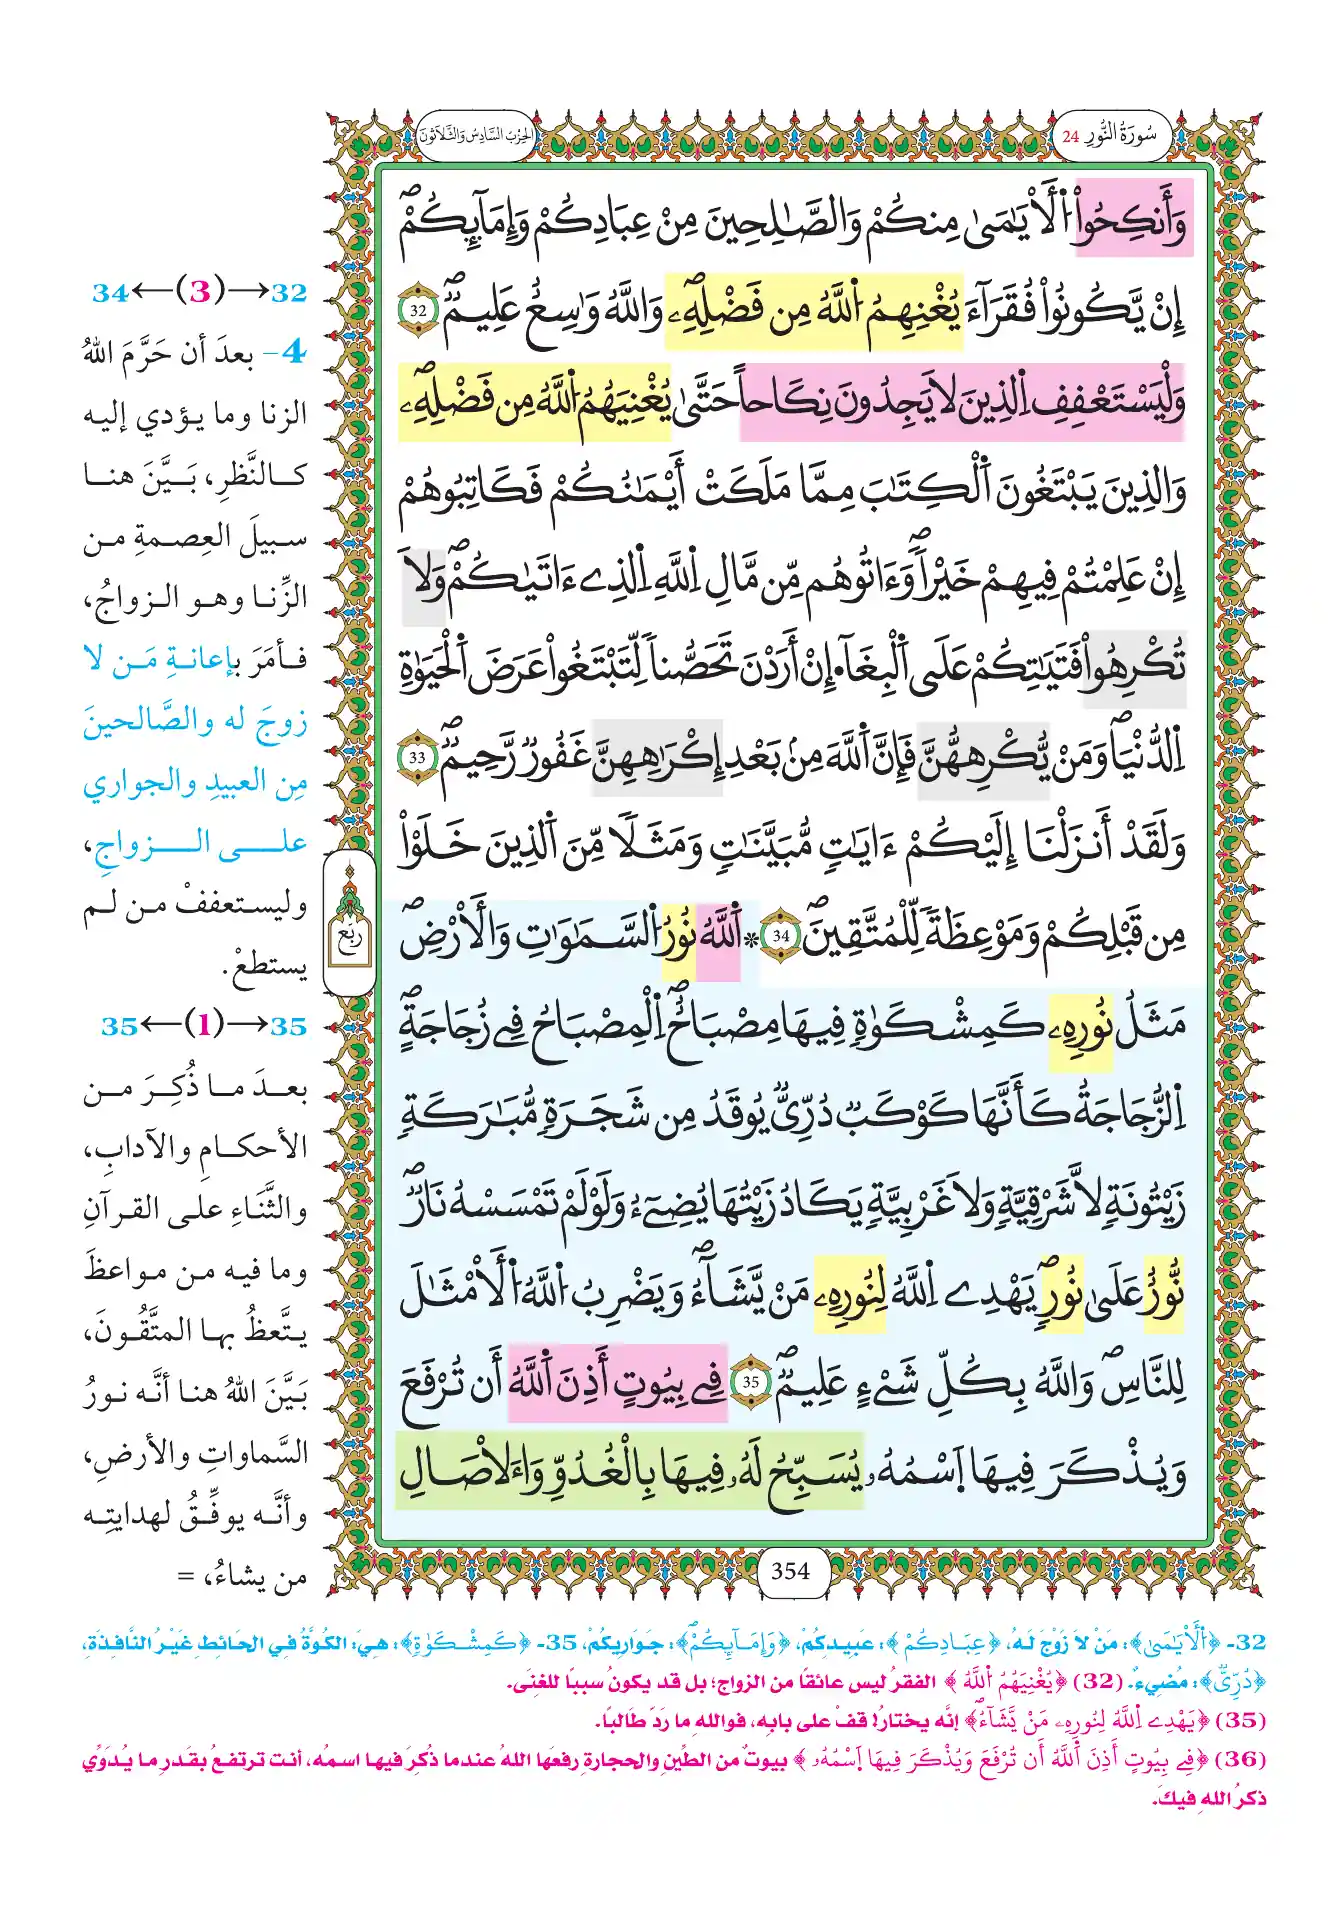 سُورَةُ النُّورِ 24
الحِزبُ السَّادِسُ وَالثَّلَاثُونَ
وَأَنكِحُواْ اُ۬لْأَيَٰمَىٰ مِنكُمْ وَالصَّٰلِحِينَ مِنْ عِبَادِكُمْ وَإِمَآئِكُمْۖ
إِنْ يَّكُونُواْ فُقَرَآءَ يُغْنِهِمُ اُ۬للَّهُ مِن فَضْلِهِۦۖ وَاللَّهُ وَٰسِعٌ عَلِيمٌۖ 32
وَلْيَسْتَعْفِفِ اِ۬لذِينَ لَا يَجِدُونَ نِكَاحاً حَتَّىٰ يُغْنِيَهُمُ اُ۬للَّهُ مِن فَضْلِهِۦۖ
وَالذِينَ يَبْتَغُونَ اَ۬لْكِتَٰبَ مِمَّا مَلَكَتْ أَيْمَٰنُكُمْ فَكَاتِبُوهُمْ
إِنْ عَلِمْتُمْ فِيهِمْ خَيْراًۖ وَءَاتُوهُم مِّن مَّالِ اِ۬للَّهِ اِ۬لذِے ءَاتَىٰكُمْۖ وَلَا
تُكْرِهُواْ فَتَيَٰتِكُمْ عَلَى اَ۬لْبِغَآءِ انْ أَرَدْنَ تَحَصُّناً لِّتَبْتَغُواْ عَرَضَ اَ۬لْحَيَوٰةِ
اِ۬لدُّنْيَاۖ وَمَنْ يُّكْرِههُّنَّ فَإِنَّ اَ۬للَّهَ مِنۢ بَعْدِ إِكْرَٰهِهِنَّ غَفُورٌ رَّحِيمٌۖ 33
وَلَقَدْ أَنزَلْنَا إِلَيْكُمْ ءَايَٰتٍ مُّبَيَّنَٰتٍ وَمَثَلًا مِّنَ اَ۬لذِينَ خَلَوْاْ
مِن قَبْلِكُمْ وَمَوْعِظَةً لِّلْمُتَّقِينَۖ 34 * اَ۬للَّهُ نُورُ اُ۬لسَّمَٰوَٰتِ وَالْأَرْضِۖ
مَثَلُ نُورِهِۦ كَمِشْكَوٰةٍ فِيهَا مِصْبَاحٌۖ اِ۬لْمِصْبَاحُ فِے زُجَاجَةٍۖ
اِ۬لزُّجَاجَةُ كَأَنَّهَا كَوْكَبٌ دُرِّيٌّ يُوقَدُ مِن شَجَرَةٍ مُّبَٰرَكَةٍ
زَيْتُونَةٍ لَّا شَرْقِيَّةٍ وَلَا غَرْبِيَّةٍ يَكَادُ زَيْتُهَا يُضِيٓءُ وَلَوْ لَمْ تَمْسَسْهُ نَارٌۖ
نُّورٌ عَلَىٰ نُورٍۖ يَهْدِے اِ۬للَّهُ لِنُورِهِۦ مَنْ يَّشَآءُۖ وَيَضْرِبُ اُ۬للَّهُ اُ۬لْأَمْثَٰلَ
لِلنَّاسِۖ وَاللَّهُ بِكُلِّ شَےْءٍ عَلِيمٌۖ 35 فِے بِيُوتٍ أَذِنَ اَ۬للَّهُ أَن تُرْفَعَ
وَيُذْكَرَ فِيهَا اَ۪سْمُهُۥ يُسَبِّحُ لَهُۥ فِيهَا بِالْغُدُوِّ وَالْأٓصَالِ
354
رُبُع
32→(3)←34
4- بعدَ أن حَرَّمَ اللهُ
الزنا وما يؤدي إليه
كالنَّظرِ، بَيَّنَ هنا
سبيلَ العِصمةِ من
الزِّنا وهو الزواجُ،
فأمَرَ بإعانةِ مَن لا
زوجَ له والصَّالحينَ
مِن العبيدِ والجواري
على الزواجِ،
وليستعففْ من لم
يستطعْ.
35→(1)←35
بعدَ ما ذُكِرَ من
الأحكامِ والآدابِ،
والثَّنَاءِ على القرآنِ
وما فيه من مواعظَ
يتَّعظُ بها المتَّقُونَ،
بَيَّنَ اللهُ هنا أنَّه نورُ
السَّماواتِ والأرضِ،
وأنَّه يوفِّقُ لهدايتِه
من يشاءُ، =
32- ﴿اُ۬لْأَيَٰمَىٰ﴾: مَنْ لا زَوْجَ لَهُ، ﴿عِبَادِكُمْ﴾: عَبِيدِكُمْ، ﴿وَإِمَآئِكُمْۖ﴾: جَوَارِيكُمْ، 35- ﴿كَمِشْكَوٰةٍ﴾: هِيَ: الكُوَّةُ فِي الحَائِطِ غَيْرُ النَّافِذَةِ،
﴿دُرِّيٌّ﴾: مُضِيءٌ. (32) ﴿يُغْنِيَهُمُ اُ۬للَّهُ﴾ الفقرُ ليس عائقًا من الزواج؛ بل قد يكونُ سببًا للغِنَى.
(35) ﴿يَهْدِے اِ۬للَّهُ لِنُورِهِۦ مَنْ يَّشَآءُۖ﴾ إنَّه يختارُ! قفْ على بابِه، فواللهِ ما ردَ طَالبًا.
(36) ﴿فِے بِيُوتٍ أَذِنَ اَ۬للَّهُ أَن تُرْفَعَ وَيُذْكَرَ فِيهَا اَ۪سْمُهُۥ﴾ بيوتٌ من الطِّينِ والحجارةِ رفعَها اللهُ عندما ذُكِرَ فيها اسمُه، أنت ترتفعُ بقَدرِ ما يُدَوِّي
ذكرُ اللهِ فيكَ.